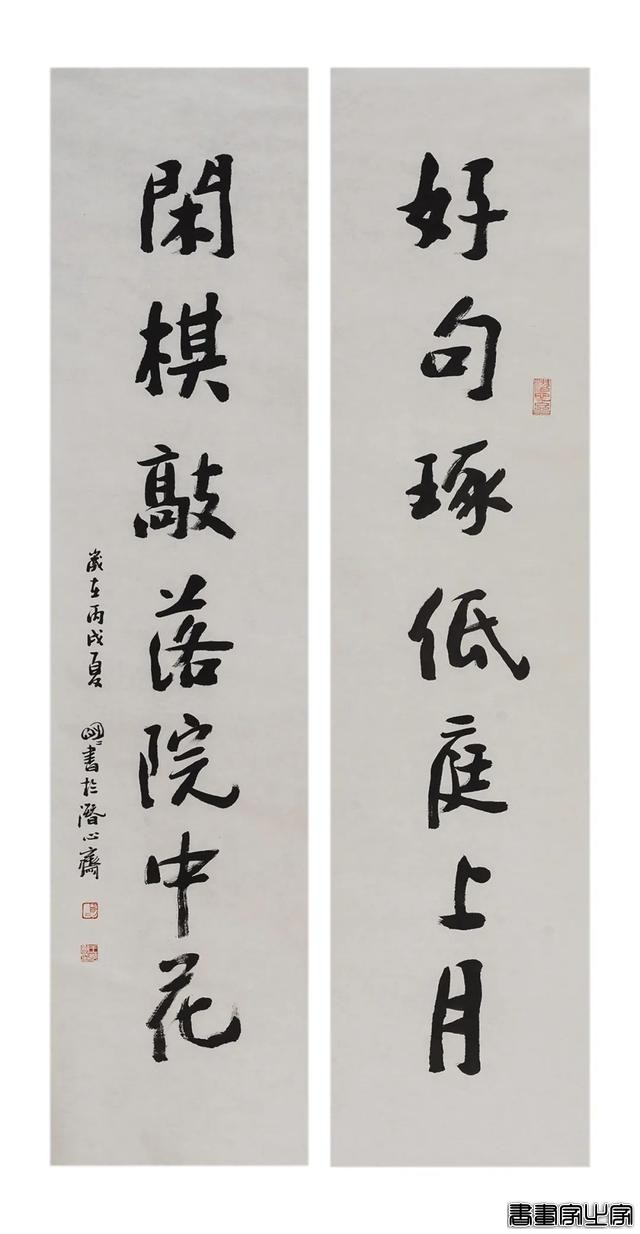 好句琢低庭上月
閑棋敲落院中花
歲在丙戌夏
書於潛心齋
書畫家山字